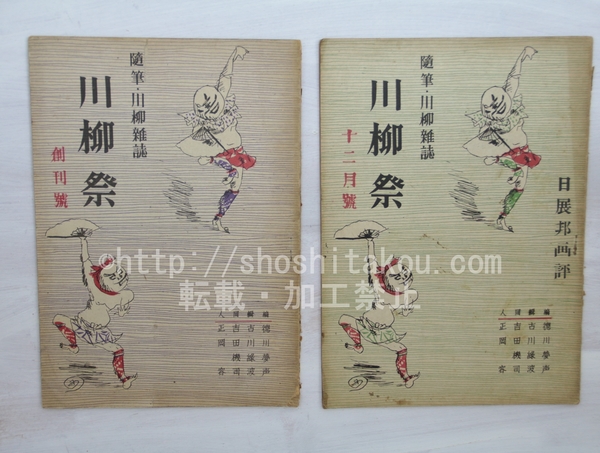 随筆・川柳雑誌
川柳祭
創刊號
編 徳川夢声
輯 古川緑波
同 吉田機司
人 正岡容
随筆・川柳雑誌
川柳祭
十二月號
日展邦画評
編 徳川夢声
輯 古川緑波
同 吉田機司
人 正岡容
©http://shoshitakou.com
転載・加工禁止